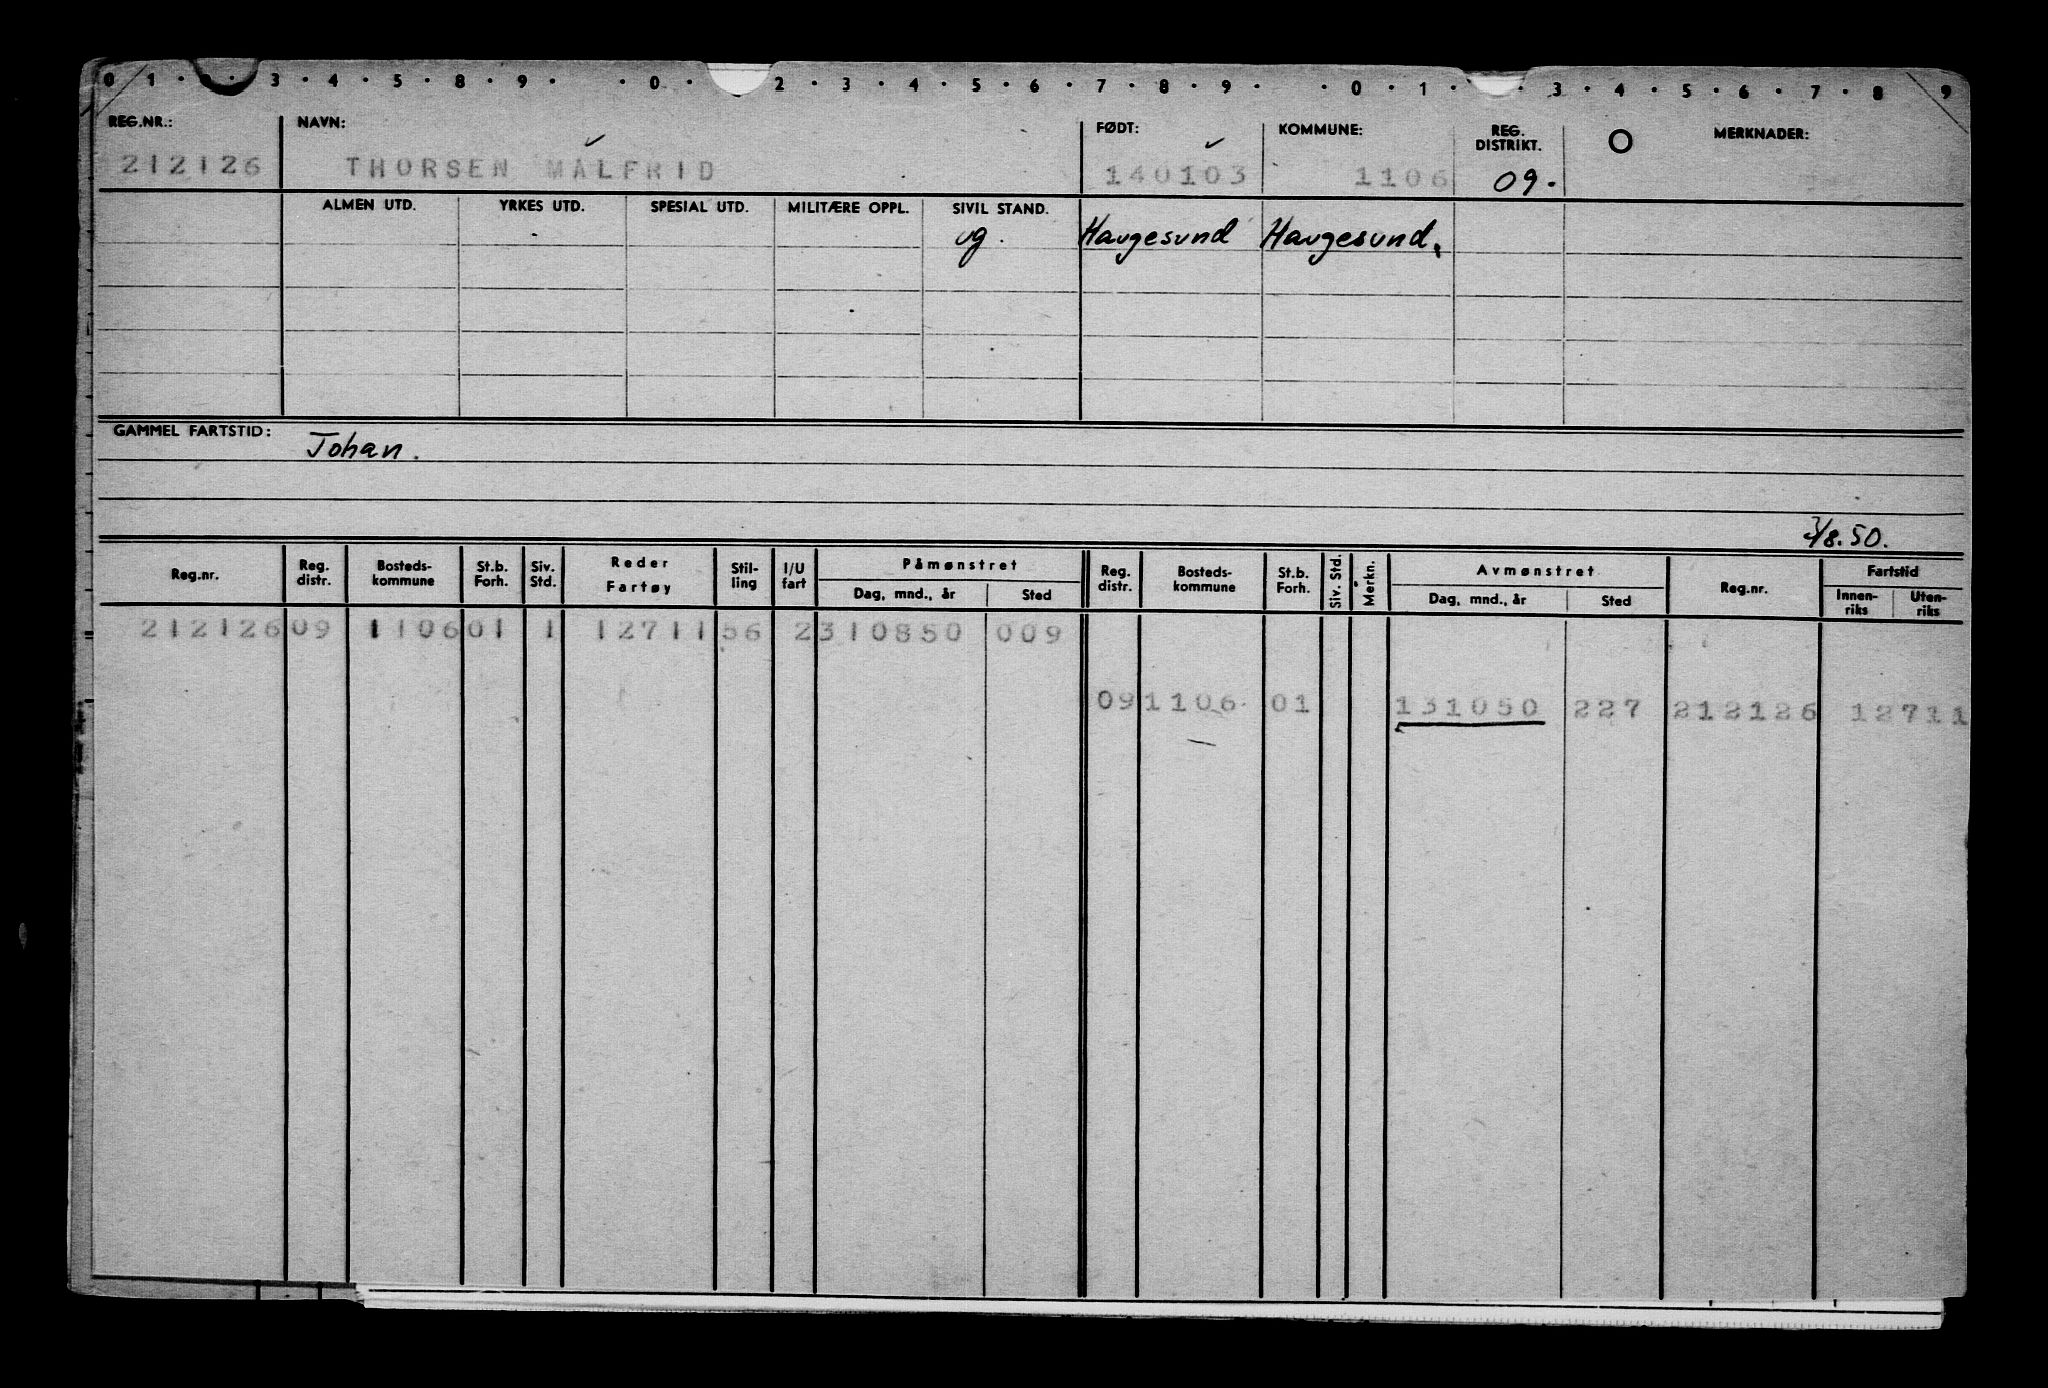 0 1 · 2 · 3 · 4 · 5 · 8 · 9 · · 0 · 2 · 3 · 4 · 5 · 6 · 7 · 8 · 9 · · 0 · 1 · · 3 · 4 · 5 · 6 · 7 · 8 9
REG.NR.: NAVN: FØDT: KOMMUNE: REG. DISTRIKT. O MERKNADER:
212126 THORSEN MALFRID 140103 1106 09.
ALMEN UTD. YRKES UTD. SPESIAL UTD. MILITÆRE OPPL. SIVIL STAND.
ug. Haugesund Haugesund.
GAMMEL FARTSTID: Johan.
3/8.50.
Reg.nr. Reg. distr. Bosteds-kommune St.b. Forh. Siv. Std. Reder Fartøy Stil-ling I/U fart Påmønstret Reg. distr. Bosteds-kommune St.b. Forh. Siv. Std. Merkn. Avmønstret Reg.nr. Fartstid
Dag, mnd., år Sted Dag, mnd., år Sted Innen-riks Uten-riks
212126 09 1106 01 1 12711 56 2 310850 009
09 1106 01 131050 227 212126 12711